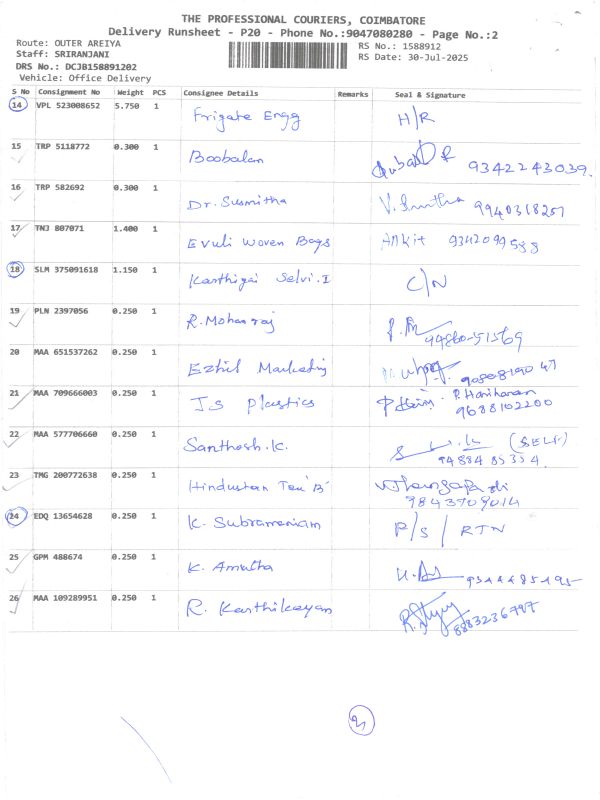 THE PROFESSIONAL COURIERS, COIMBATORE
Delivery Runsheet - P20 - Phone No.:9047080280 - Page No.:2
Route: OUTER AREIYA
RS No.: 1588912
Staff: SRIRANJANI
RS Date: 30-Jul-2025
DRS No.: DCJB158891202
Vehicle: Office Delivery
S No Consignment No Weight PCS Consignee Details Remarks Seal & Signature
14 VPL 523008652 5.750 1 Frigate Engg H/R
15 TRP 5118772 0.300 1 Boobalan 9342243039.
16 TRP 582692 0.300 1 Dr. Susmitha 9940318257
17 TNJ 807071 1.400 1 Evuli Woven Bags Ankit 9342099588
18 SLM 375091618 1.150 1 Karthigai Selvi.I C/N
19 PLN 2397056 0.250 1 R. Mohanraj 94860-51569
20 MAA 651537262 0.250 1 Ezhil Marketing
21 MAA 709666003 0.250 1 JS Plastics P. Hariharan
9688102200
22 MAA 577706660 0.250 1 Santhosh.K. (SELF)
94884 85354.
23 TMG 200772638 0.250 1 Hindustan Tex 'B'
9843709014
24 EDQ 13654628 0.250 1 K. Subramaniam P/S / RTN
25 GPM 488674 0.250 1 K. Amutha
26 MAA 109289951 0.250 1 R. Karthikeyan 8883236797